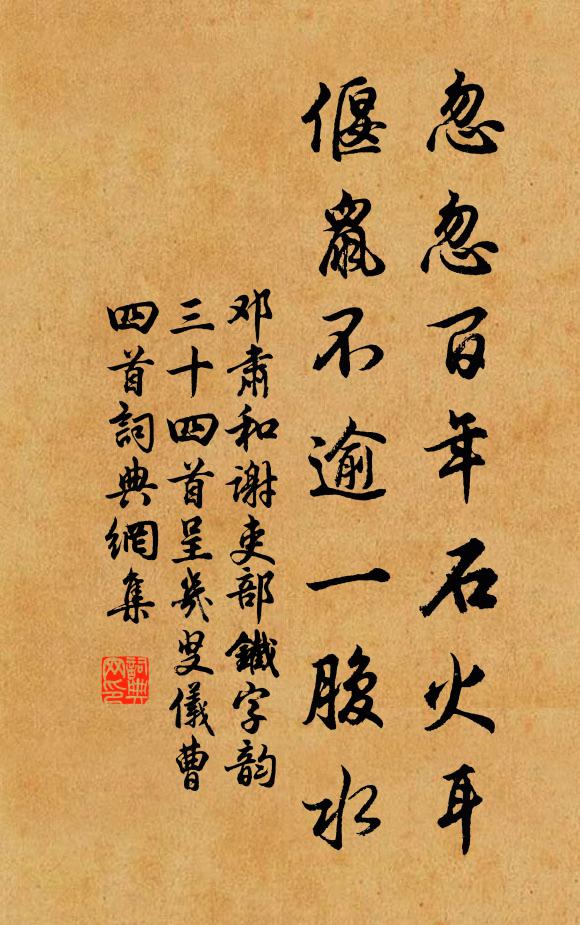 忽忽百年石火耳
偃鼠不逾一腹水
邓肃和谢吏部鐵字韵
三十四首呈幾叟儀曹
四首詞典網集
詞典
网印